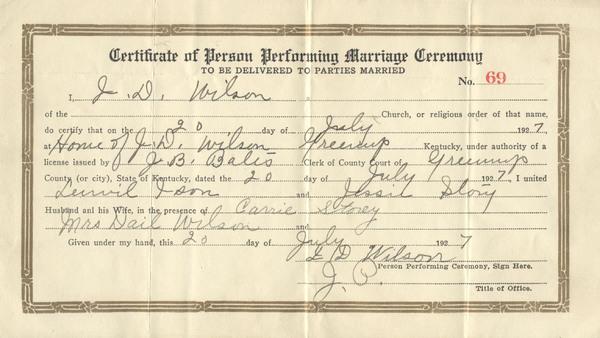 Certificate of Person Performing Marriage Ceremony
TO BE DELIVERED TO PARTIES MARRIED
No. 69
I, J. D. Wilson
of the Church, or religious order of that name,
do certify that on the 20 day of July 1927,
at Home of J. D. Wilson Greenup Kentucky, under authority of a
license issued by J. B. Bates Clerk of County Court of Greenup
County (or city), State of Kentucky, dated the 20 day of July 1927, I united
Lenvil Ison and Jessie Story
Husband anl his Wife, in the presence of Carrie Storey
Mrs Dail Wilson and
Given under my hand, this 20 day of July 1927
J D Wilson
Person Performing Ceremony, Sign Here.
J. P.
Title of Office.